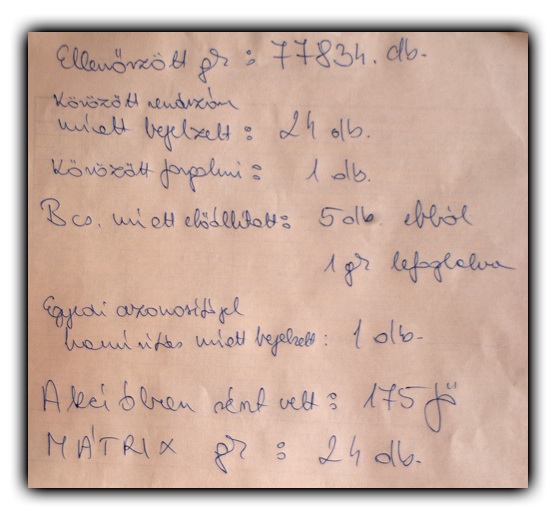 Ellenőrzött gr : 77834. db.
Körözött rendszám
miatt bejelzett : 24 db.
Körözött forgalmi : 1 db.
Bcs. miatt előállított : 5 db. ebből
1 gr lefoglalva
Egyedi azonosítójel
hamisítás miatt bejelzett : 1 db.
Akcióban részt vett : 175 fő
MÁTRIX gr : 24 db.